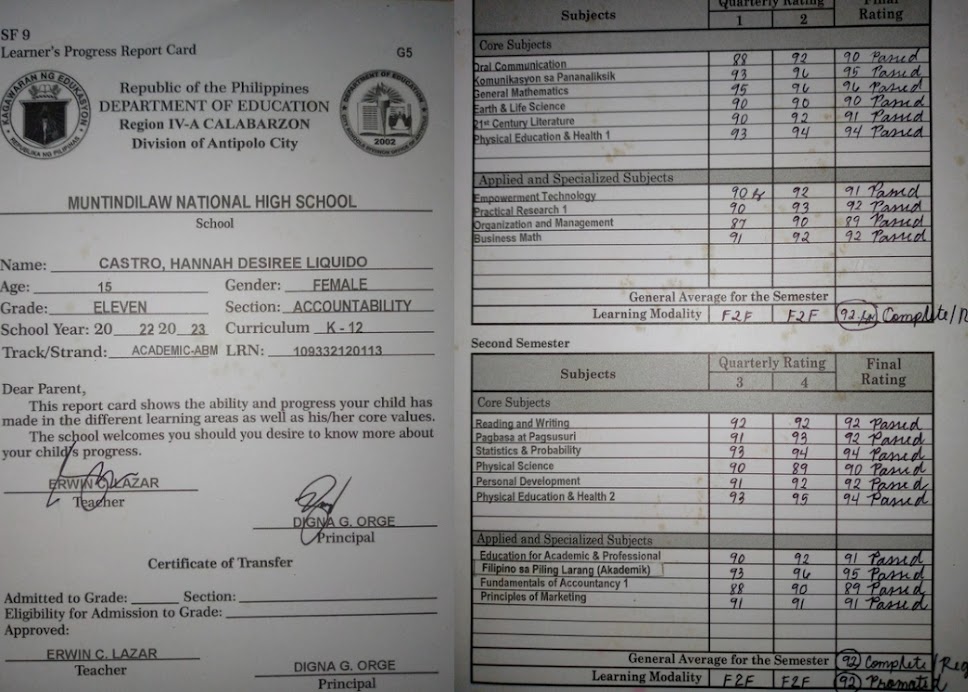 SF 9
Learner's Progress Report Card
G5
KAGAWARAN NG EDUKASYON
REPUBLIKA NG PILIPINAS
Republic of the Philippines
DEPARTMENT OF EDUCATION
Region IV-A CALABARZON
Division of Antipolo City
DEPARTMENT OF EDUCATION
2002
MUNTINDILAW NATIONAL HIGH SCHOOL
School
Name: CASTRO, HANNAH DESIREE LIQUIDO
Age: 15 Gender: FEMALE
Grade: ELEVEN Section: ACCOUNTABILITY
School Year: 20 22 20 23 Curriculum K - 12
Track/Strand: ACADEMIC-ABM LRN: 109332120113
Dear Parent,
This report card shows the ability and progress your child has
made in the different learning areas as well as his/her core values.
The school welcomes you should you desire to know more about
your child's progress.
ERWIN C. LAZAR
Teacher
DIGNA G. ORGE
Principal
Certificate of Transfer
Admitted to Grade: Section:
Eligibility for Admission to Grade:
Approved:
ERWIN C. LAZAR
Teacher
DIGNA G. ORGE
Principal
Subjects Quarterly Rating Final Rating
1 2
Core Subjects
Oral Communication 88 92 90 Passed
Komunikasyon sa Pananaliksik 93 96 95 Passed
General Mathematics 95 96 96 Passed
Earth & Life Science 90 90 90 Passed
21st Century Literature 90 92 91 Passed
Physical Education & Health 1 93 94 94 Passed
Applied and Specialized Subjects
Empowerment Technology 90 92 91 Passed
Practical Research 1 90 93 92 Passed
Organization and Management 87 90 89 Passed
Business Math 91 92 92 Passed
General Average for the Semester
Learning Modality F2F F2F 92 Complete/R
Second Semester
Subjects Quarterly Rating Final Rating
3 4
Core Subjects
Reading and Writing 92 92 92 Passed
Pagbasa at Pagsusuri 91 93 92 Passed
Statistics & Probability 93 94 94 Passed
Physical Science 90 89 90 Passed
Personal Development 91 92 92 Passed
Physical Education & Health 2 93 95 94 Passed
Applied and Specialized Subjects
Education for Academic & Professional 90 92 91 Passed
Filipino sa Piling Larang (Akademik) 93 96 95 Passed
Fundamentals of Accountancy 1 88 90 89 Passed
Principles of Marketing 91 91 91 Passed
General Average for the Semester 92 Complete/Reg
Learning Modality F2F F2F 92 Promoted